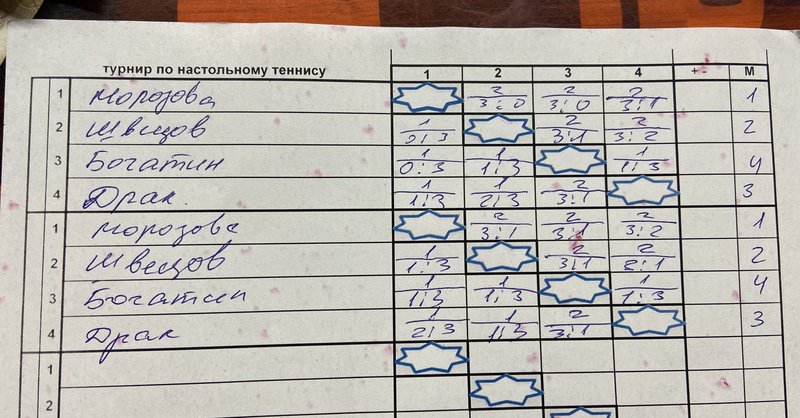 турнир по настольному теннису 1 2 3 4 + - М
1 Морозова 2 3:0 2 3:0 2 3:1 1
2 Швецов 1 0:3 2 3:1 2 3:2 2
3 Богатин 1 0:3 1 1:3 1 1:3 4
4 Драк. 1 1:3 1 2:3 2 3:1 3
1 Морозова 2 3:1 2 3:1 2 3:2 1
2 Швецов 1 1:3 2 3:1 2 2:1 2
3 Богатин 1 1:3 1 1:3 1 1:3 4
4 Драк 1 2:3 1 1:3 2 3:1 3
1
2